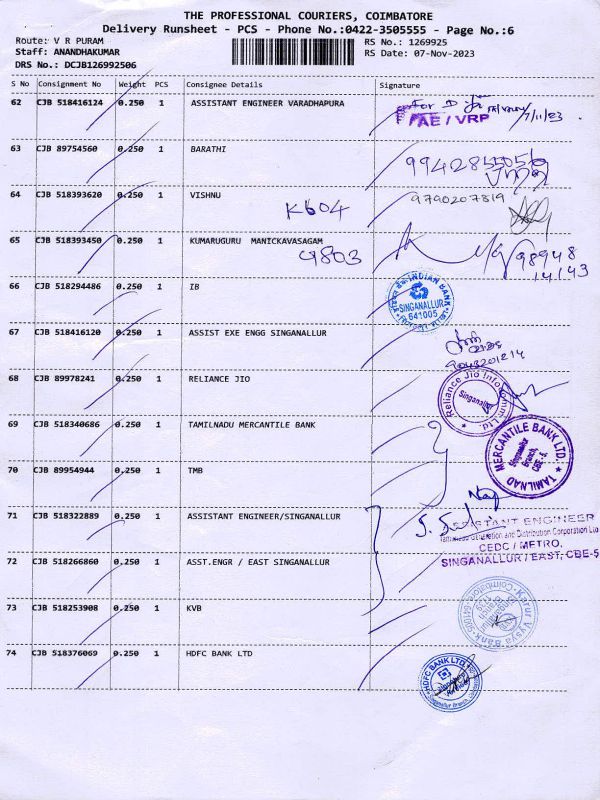 THE PROFESSIONAL COURIERS, COIMBATORE
Delivery Runsheet - PCS - Phone No.:0422-3505555 - Page No.:6
Route: V R PURAM
RS No.: 1269925
Staff: ANANDHAKUMAR
RS Date: 07-Nov-2023
DRS No.: DCJB126992506
S No Consignment No Weight PCS Consignee Details Signature
62 CJB 518416124 0.250 1 ASSISTANT ENGINEER VARADHAPURA
For
AE / VRP
7/11/23
63 CJB 89754560 0.250 1 BARATHI
64 CJB 518393620 0.250 1 VISHNU
9790207819
K604
65 CJB 518393450 0.250 1 KUMARUGURU MANICKAVASAGAM
9803
98948
14143
66 CJB 518294486 0.250 1 IB
INDIAN BANK
SINGANALLUR
641005
67 CJB 518416120 0.250 1 ASSIST EXE ENGG SINGANALLUR
9043201214
68 CJB 89978241 0.250 1 RELIANCE JIO
Reliance Jio Infocomm Ltd.
Singanallur
69 CJB 518340686 0.250 1 TAMILNADU MERCANTILE BANK
TAMILNAD MERCANTILE BANK LTD.
Singanallur
Branch,
CBE - 5.
70 CJB 89954944 0.250 1 TMB
71 CJB 518322889 0.250 1 ASSISTANT ENGINEER/SINGANALLUR
ASSISTANT ENGINEER
Tamilnadu Generation and Distribution Corporation Ltd
CEDC / METRO,
SINGANALLUR / EAST, CBE-5
72 CJB 518266860 0.250 1 ASST.ENGR / EAST SINGANALLUR
73 CJB 518253908 0.250 1 KVB
Karur Vysya Bank
Coimbatore
74 CJB 518376069 0.250 1 HDFC BANK LTD
HDFC BANK LTD.